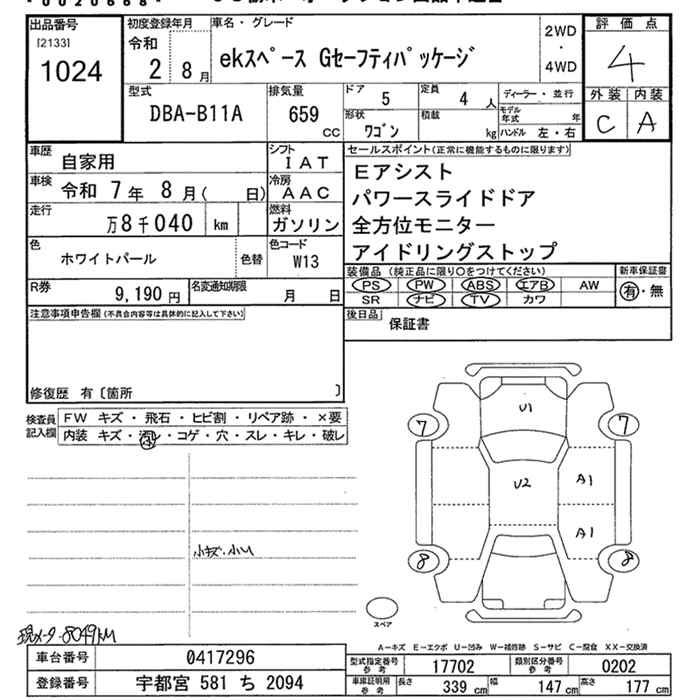 0020668
出品番号
[2133]
1024
初度登録年月
令和
2 8月
車名・グレード
ekスペース Gセーフティパッケージ
2WD
・
4WD
評価点
4
外装 内装
C A
型式
DBA-B11A
排気量
659
CC
ドア
5
定員
4 人
ディーラー・並行
形状
ワゴン
積載
kg
モデル年式 年
ハンドル 左・右
車歴
自家用
シフト
IAT
車検
令和 7年 8月( 日)
冷房
AAC
走行
万8千040 km
燃料
ガソリン
色
ホワイトパール
色替
色コード
W13
R券
9,190 円
名変通知期限
月 日
セールスポイント(正常に機能するものに限ります)
Eアシスト
パワースライドドア
全方位モニター
アイドリングストップ
装備品(純正品に限り○をつけてください)
新車保証書
PS PW ABS エアB AW
有・無
SR ナビ TV カワ
後日品
保証書
注意事項申告欄(不具合内容等は具体的に記入して下さい)
修復歴 有〔箇所 〕
検査員
記入欄
FW キズ・飛石・ヒビ割・リペア跡・×要
内装 キズ・汚レ・コゲ・穴・スレ・キレ・破レ
U1
7 7
U2
A1
A1
8 8
小キズ、小U
スペア
現メータ 8049km
A-キズ E-エクボ U-凹み W-補修跡 S-サビ C-腐食 XX-交換済
車台番号
0417296
登録番号
宇都宮 581 ち 2094
型式指定番号
参考
17702
類別区分番号
参考
0202
車庫証明用
参考
長さ 339 cm
幅 147 cm
高さ 177 cm